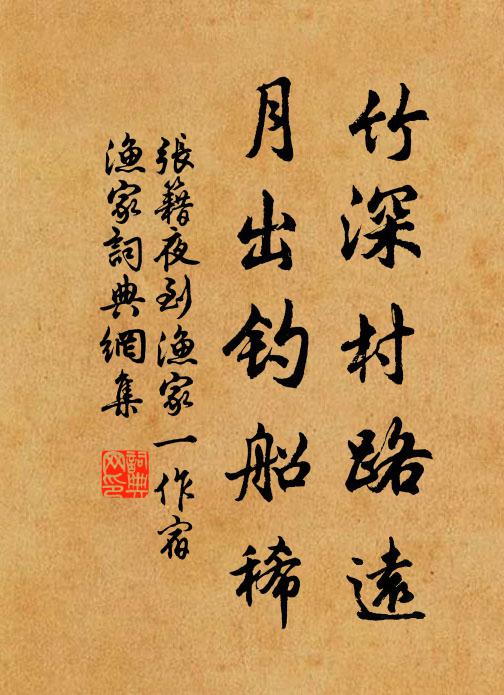 竹深村路遠
月出钓船稀
張籍夜到漁家一作宿
漁家詞典網集
詞典
网印